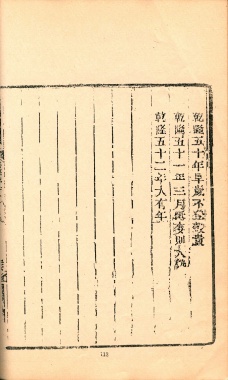 乾隆五十年旱歲不登穀貴
乾隆五十一年三月每麥則大熟
乾隆五十二年大有年